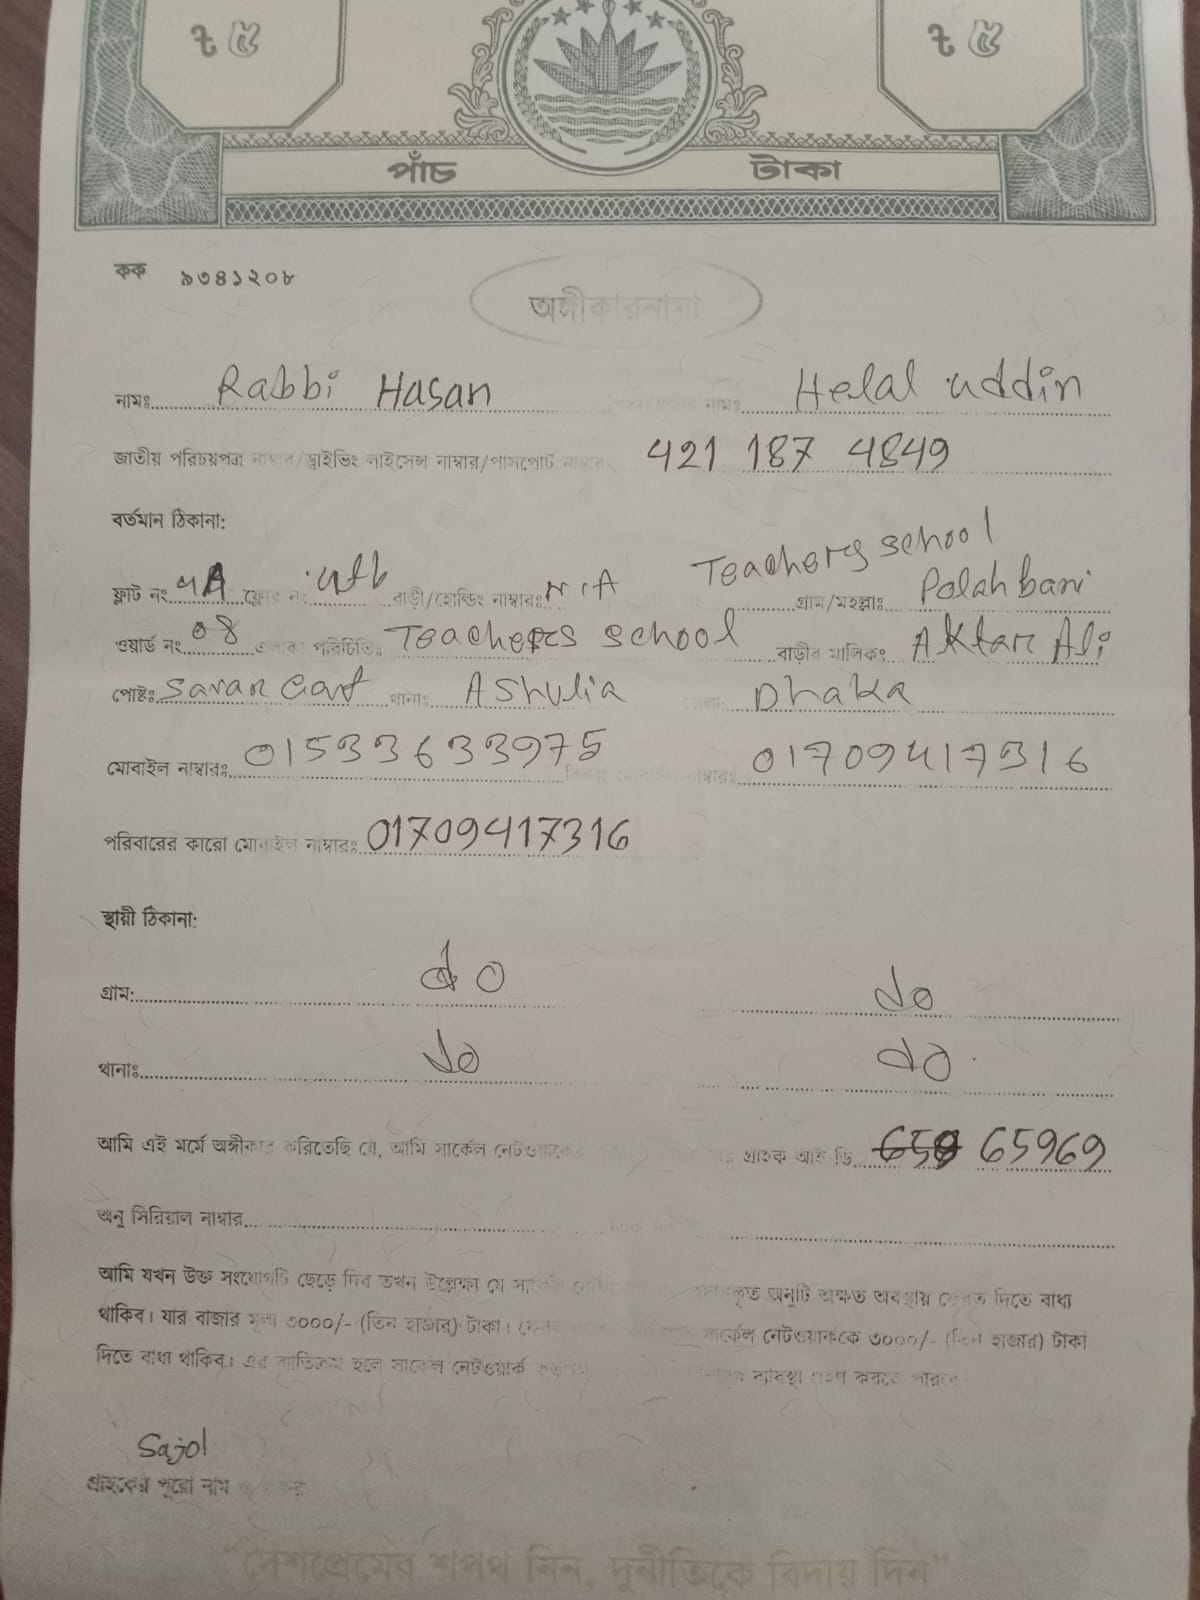 ৳ ৫ ৳ ৫
পাঁচ টাকা
কক ৯৩৪১২০৮
অঙ্গীকারনামা
নামঃ Rabbi Hasan নামঃ Helal uddin
জাতীয় পরিচয়পত্র নাম্বার/ড্রাইভিং লাইসেন্স নাম্বার/পাসপোর্ট নাম্বারঃ 421 187 4849
বর্তমান ঠিকানা:
Teachers school
ফ্লাট নং 4A ফ্লোর নং বাড়ী/হোল্ডিং নাম্বারঃ N/A গ্রাম/মহল্লাঃ Polahbari
ওয়ার্ড নং 08 এলাকা পরিচিতিঃ Teachers school বাড়ীর মালিকঃ Aktar Ali
পোষ্টঃ থানাঃ AShulia জেলা: Dhaka
মোবাইল নাম্বারঃ 01533633975 বিকল্প মোবাইল নাম্বারঃ 01709417316
পরিবারের কারো মোবাইল নাম্বারঃ 01709417316
স্থায়ী ঠিকানা:
গ্রাম: do do
থানাঃ do do
আমি এই মর্মে অঙ্গীকার করিতেছি যে, আমি সার্কেল নেটওয়ার্কের গ্রাহক আই ডি 65969
অনু সিরিয়াল নাম্বার
আমি যখন উক্ত সংযোগটি ছেড়ে দিব তখন উল্লেক্ষা যে অনুটি অক্ষত অবস্থায় ফেরত দিতে বাধ্য
থাকিব। যার বাজার মূল্য ৩০০০/- (তিন হাজার) টাকা। সার্কেল নেটওয়ার্ককে ৩০০০/- (তিন হাজার) টাকা
দিতে বাধ্য থাকিব। এর ব্যতিক্রম হলে সার্কেল নেটওয়ার্ক ব্যবস্থা গ্রহণ করতে পারবে
Sajol
গ্রাহকের পুরো নাম ও
"দেশপ্রেমের শপথ নিন, দুর্নীতিকে বিদায় দিন"